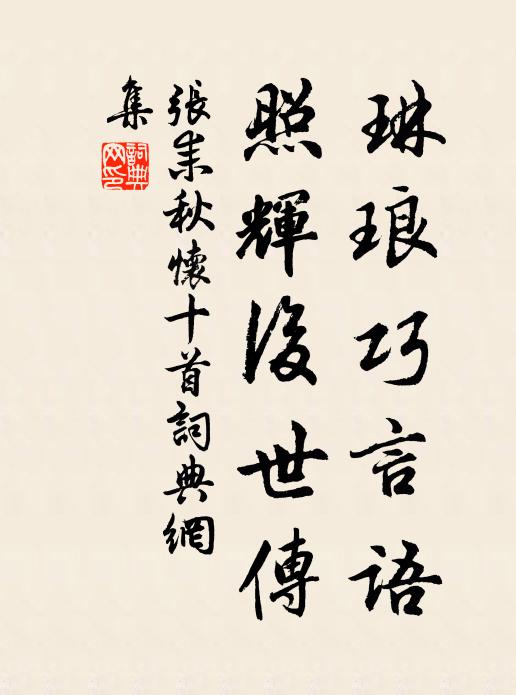 琳琅巧言語
照輝後世傳
張耒秋懷十首詞典網
集
詞典
网印